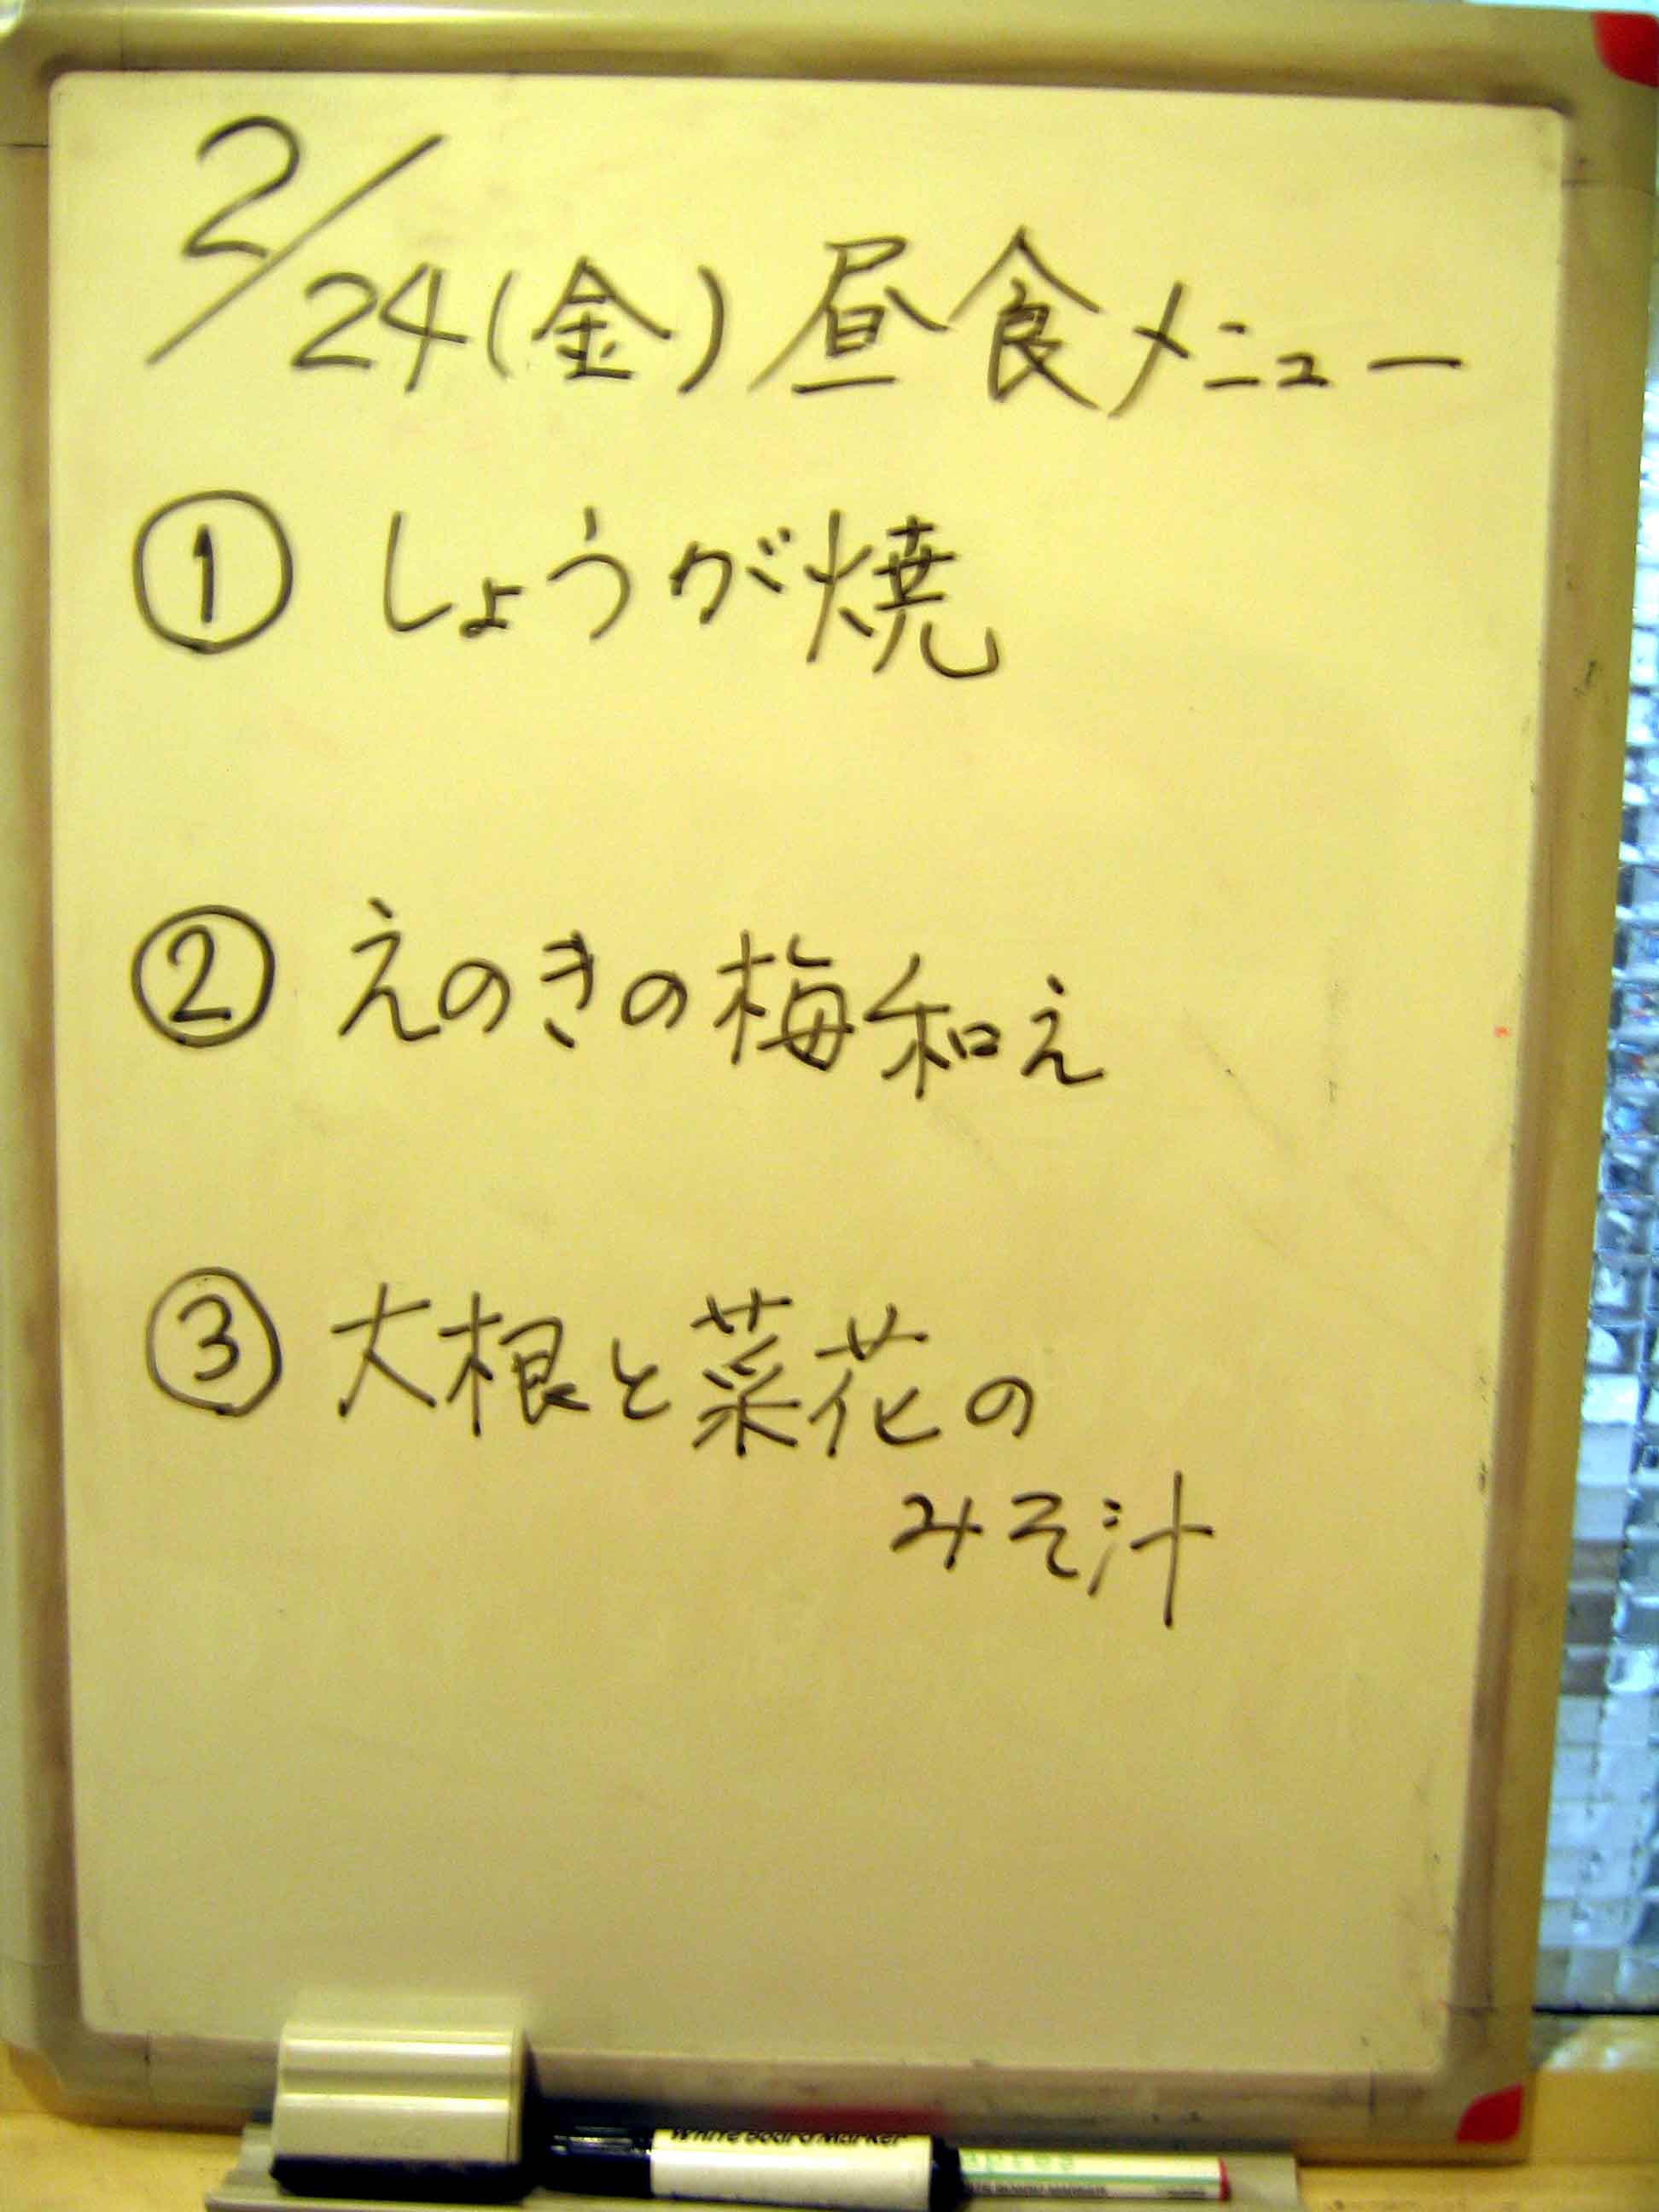 2/24(金)昼食メニュー
① しょうが焼
② えのきの梅和え
③ 大根と菜花の
みそ汁
White Board Marker